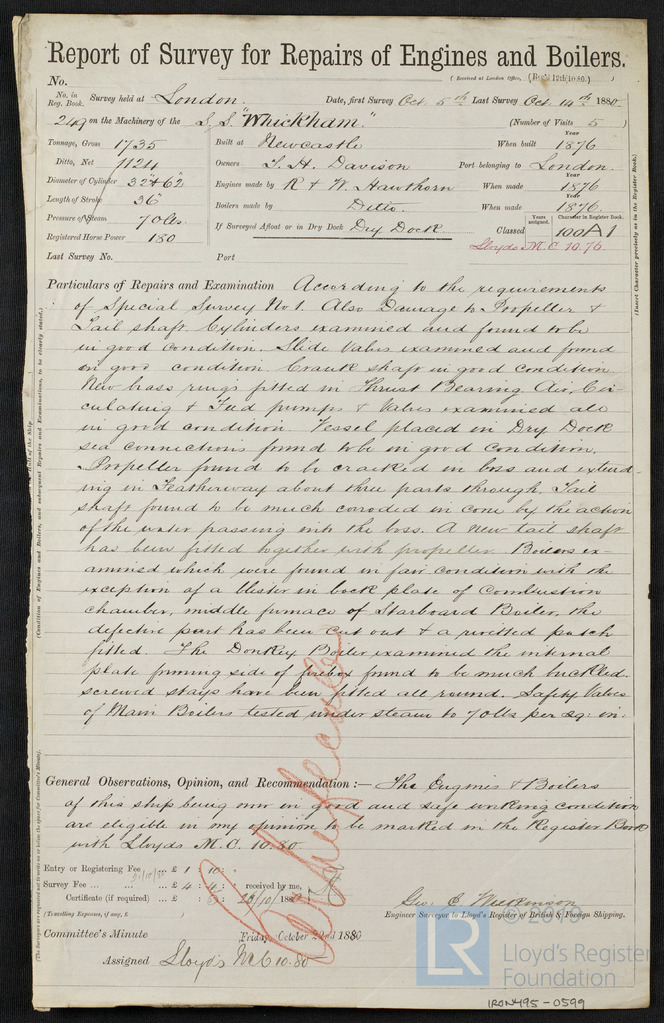 Report of Survey for Repairs of Engines and Boilers.
No.
(Received at London Office,
No. in Reg. Book. Survey held at London. Date, first Survey Oct 5th Last Survey Oct 14th 1880
249 on the Machinery of the S.S. "Whickham." (Number of Visits 5)
Tonnage, Gross 1735
Ditto, Net 1124
Diameter of Cylinder 32" & 62
Length of Stroke 36"
Pressure of Steam 70 lbs.
Registered Horse Power 180
Built at Newcastle
Owners T. H. Davison
Engines made by R & W. Hawthorn
Boilers made by Ditto.
If Surveyed Afloat or in Dry Dock Dry Dock
Year
When built 1876
Port belonging to London.
Year
When made 1876
Year
When made 1876
Years assigned. Character in Register Book.
Classed 100A1
Lloyds M.C. 10.76.
Last Survey No. Port
Particulars of Repairs and Examination According to the requirements
of Special Survey No 1. Also Damage to Propeller &
Tail shaft. Cylinders examined and found to be
in good condition. Slide Valves examined and found
in good condition. Crank shaft in good condition
New brass rings fitted in Thrust Bearing. Air, Cir-
culating & Feed pumps & Valves examined all
in good condition. Vessel placed in Dry Dock
sea connections found to be in good condition.
Propeller found to be cracked in boss and extend-
ing in Featherway about three parts through, Tail
shaft found to be much coroded in cone by the action
of the water passing into the boss. A new tail shaft
has been fitted together with propeller. Boilers ex-
amined which were found in fair condition with the
exception of a blister in back plate of Combustion
chamber, middle furnace of Starboard Boiler, the
defective part has been cut out & a rivitted patch
fitted. The Donkey Boiler examined the internal
plate forming side of firebox found to be much buckled.
screwed stays have been fitted all round. Safety Valves
of Main Boilers tested under steam to 70 lbs per sq: in:
General Observations, Opinion, and Recommendation :— The Engines & Boilers
of this ship being now in good and safe working condition
are eligible in my opinion to be marked in the Register Book
with Lloyds M.C. 10.80
Entry or Registering Fee £ 1 : 10 :
Survey Fee ... £ 4 : 4 : received by me,
Certificate (if required) ... £ 188
(Travelling Expenses, if any, £ )
Geo. C. Wilkinson
Engineer Surveyor to Lloyd's Register of British & Foreign Shipping.
Committee's Minute Friday October 22nd 1880
Assigned Lloyd's M.C 10.80
(Insert Character precisely as in the Register Book.)
© 2019
LR
Lloyd's Register
Foundation
IRON495-0599